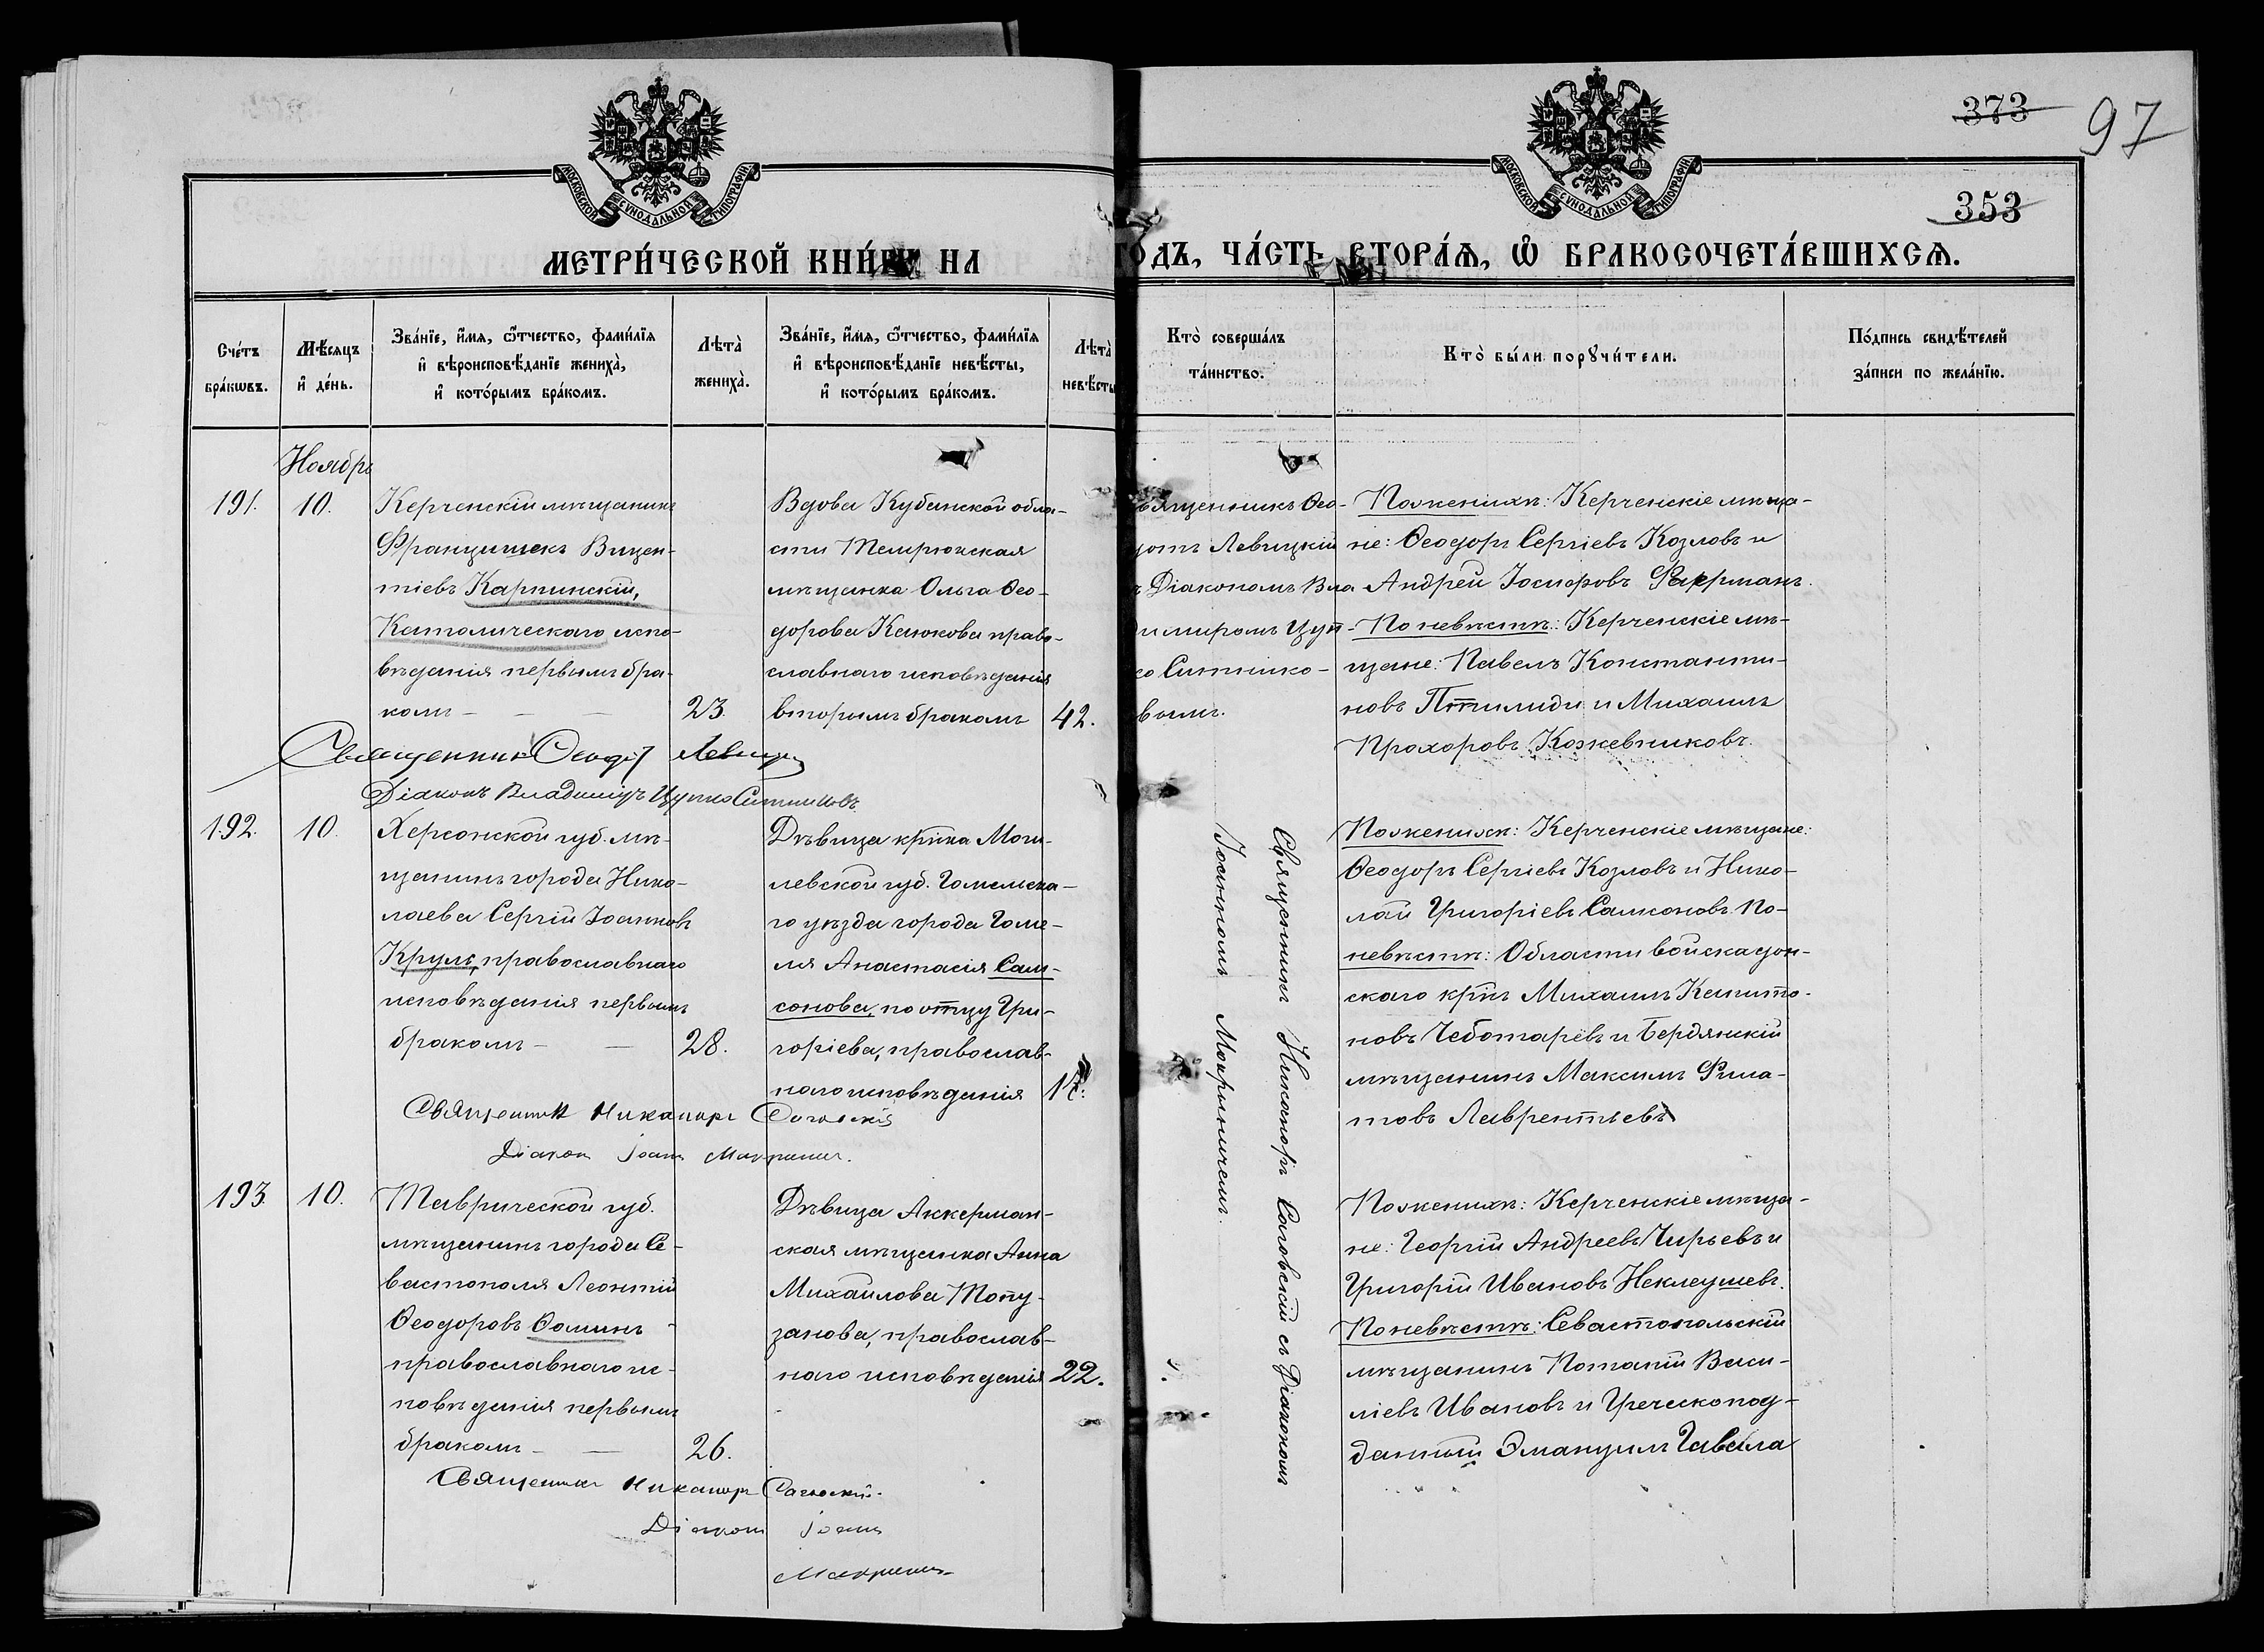 373
97
353
МОСКОВСКОЙ СѴНОДАЛЬНОЙ ТИПОГРАФІИ
МОСКОВСКОЙ СѴНОДАЛЬНОЙ ТИПОГРАФІИ
МЕТРИ́ЧЕСКОЙ КНИ́ГИ НА
ГОДЪ, ЧА́СТЬ ВТОРА́Ѧ, Ѽ БРАКОСОЧЕТА́ВШИХСѦ.
Сче́тъ бра́кѡвъ.
Мѣ́сяцъ и҆ де́нь.
Зва́нїе, и҆́мѧ, ѻ҆́тчество, фами́лїѧ
и҆ вѣроисповѣ́данїе жениха̀,
и҆ кото́рымъ бра́комъ.
Лѣ́та̀ жениха̀.
Зва́нїе, и҆́мѧ, ѻ҆́тчество, фами́лїѧ
и҆ вѣроисповѣ́данїе невѣ́сты,
и҆ кото́рымъ бра́комъ.
Лѣ́та̀ невѣ́сты
Кто̀ соверша́лъ та́инство.
Кто̀ бы́ли порꙋчи́тели.
По́дпись свидѣ́телей за́писи по жела́нїю.
Ноябрь
191.
10.
Керченскій мѣщанинъ
Францишекъ Вицен-
тіевъ Карпинскій,
Католическаго испо-
вѣданія первымъ бра-
комъ
23.
Вдова Кубанской обла-
сти Темрюкская
мѣщанка Ольга Ѳео-
дорова Каюкова право-
славнаго исповѣданія
вторымъ бракомъ
42.
Священникъ Ѳео-
дотъ Левицкій
съ Діакономъ Вла
димиромъ Цуп-
ко Ситнико-
вымъ.
По женихѣ: Керченскіе мѣща-
не: Ѳеодоръ Сергіевъ Козловъ и
Андрей Іосифовъ
По невѣстѣ: Керченскіе мѣ-
щане: Павелъ Константи-
новъ Птилиди и Михаилъ
Прохоровъ Кожевниковъ.
Священникъ Ѳеодотъ Левицкій
Діаконъ Владиміръ Цупко Ситниковъ
192.
10.
Херсонской губ. мѣ-
щанинъ города Нико-
лаева Сергій Іоанновъ
Круль, православнаго
исповѣданія первымъ
бракомъ
28.
Дѣвица кр҃нка Моги-
левской губ. Гомельска-
го уѣзда города Гоме-
ля Анастасія Сам-
сонова, по отцу Гри-
горіева, православ-
наго исповѣданія
17.
Священникъ Никаноръ Саговскій съ Діакономъ
Іоанномъ Макриничемъ.
По женихѣ: Керченскіе мѣщане:
Ѳеодоръ Сергіевъ Козловъ и Нико-
лай Григоріевъ Самсоновъ. По-
невѣстѣ: Области войска дон-
скаго кр҃нъ Михаилъ Капито-
новъ Чеботаревъ и Бердянскій
мѣщанинъ Максимъ Фила-
товъ Лаврентьевъ
Священникъ Никаноръ Саговскій
Діаконъ Іоаннъ Макриничъ.
193.
10.
Таврической губ.
мѣщанинъ города Се-
вастополя Леонтій
Ѳеодоровъ Ѳоминъ
православнаго ис-
повѣданія первымъ
бракомъ
26.
Дѣвица Аккерман-
ская мѣщанка Анна
Михайлова Топу-
занова, православ-
наго исповѣданія
22.
По женихѣ: Керченскіе мѣща-
не: Георгій Андреевъ Чирьевъ и
Григорій Ивановъ Неклеушевъ.
По невѣстѣ: Севастопольскій
мѣщанинъ Потапій Васи-
ліевъ Ивановъ и Греческопод-
данный Эмануилъ Гавала
Священникъ Никаноръ Саговскій.
Діаконъ Іоаннъ
Макриничъ